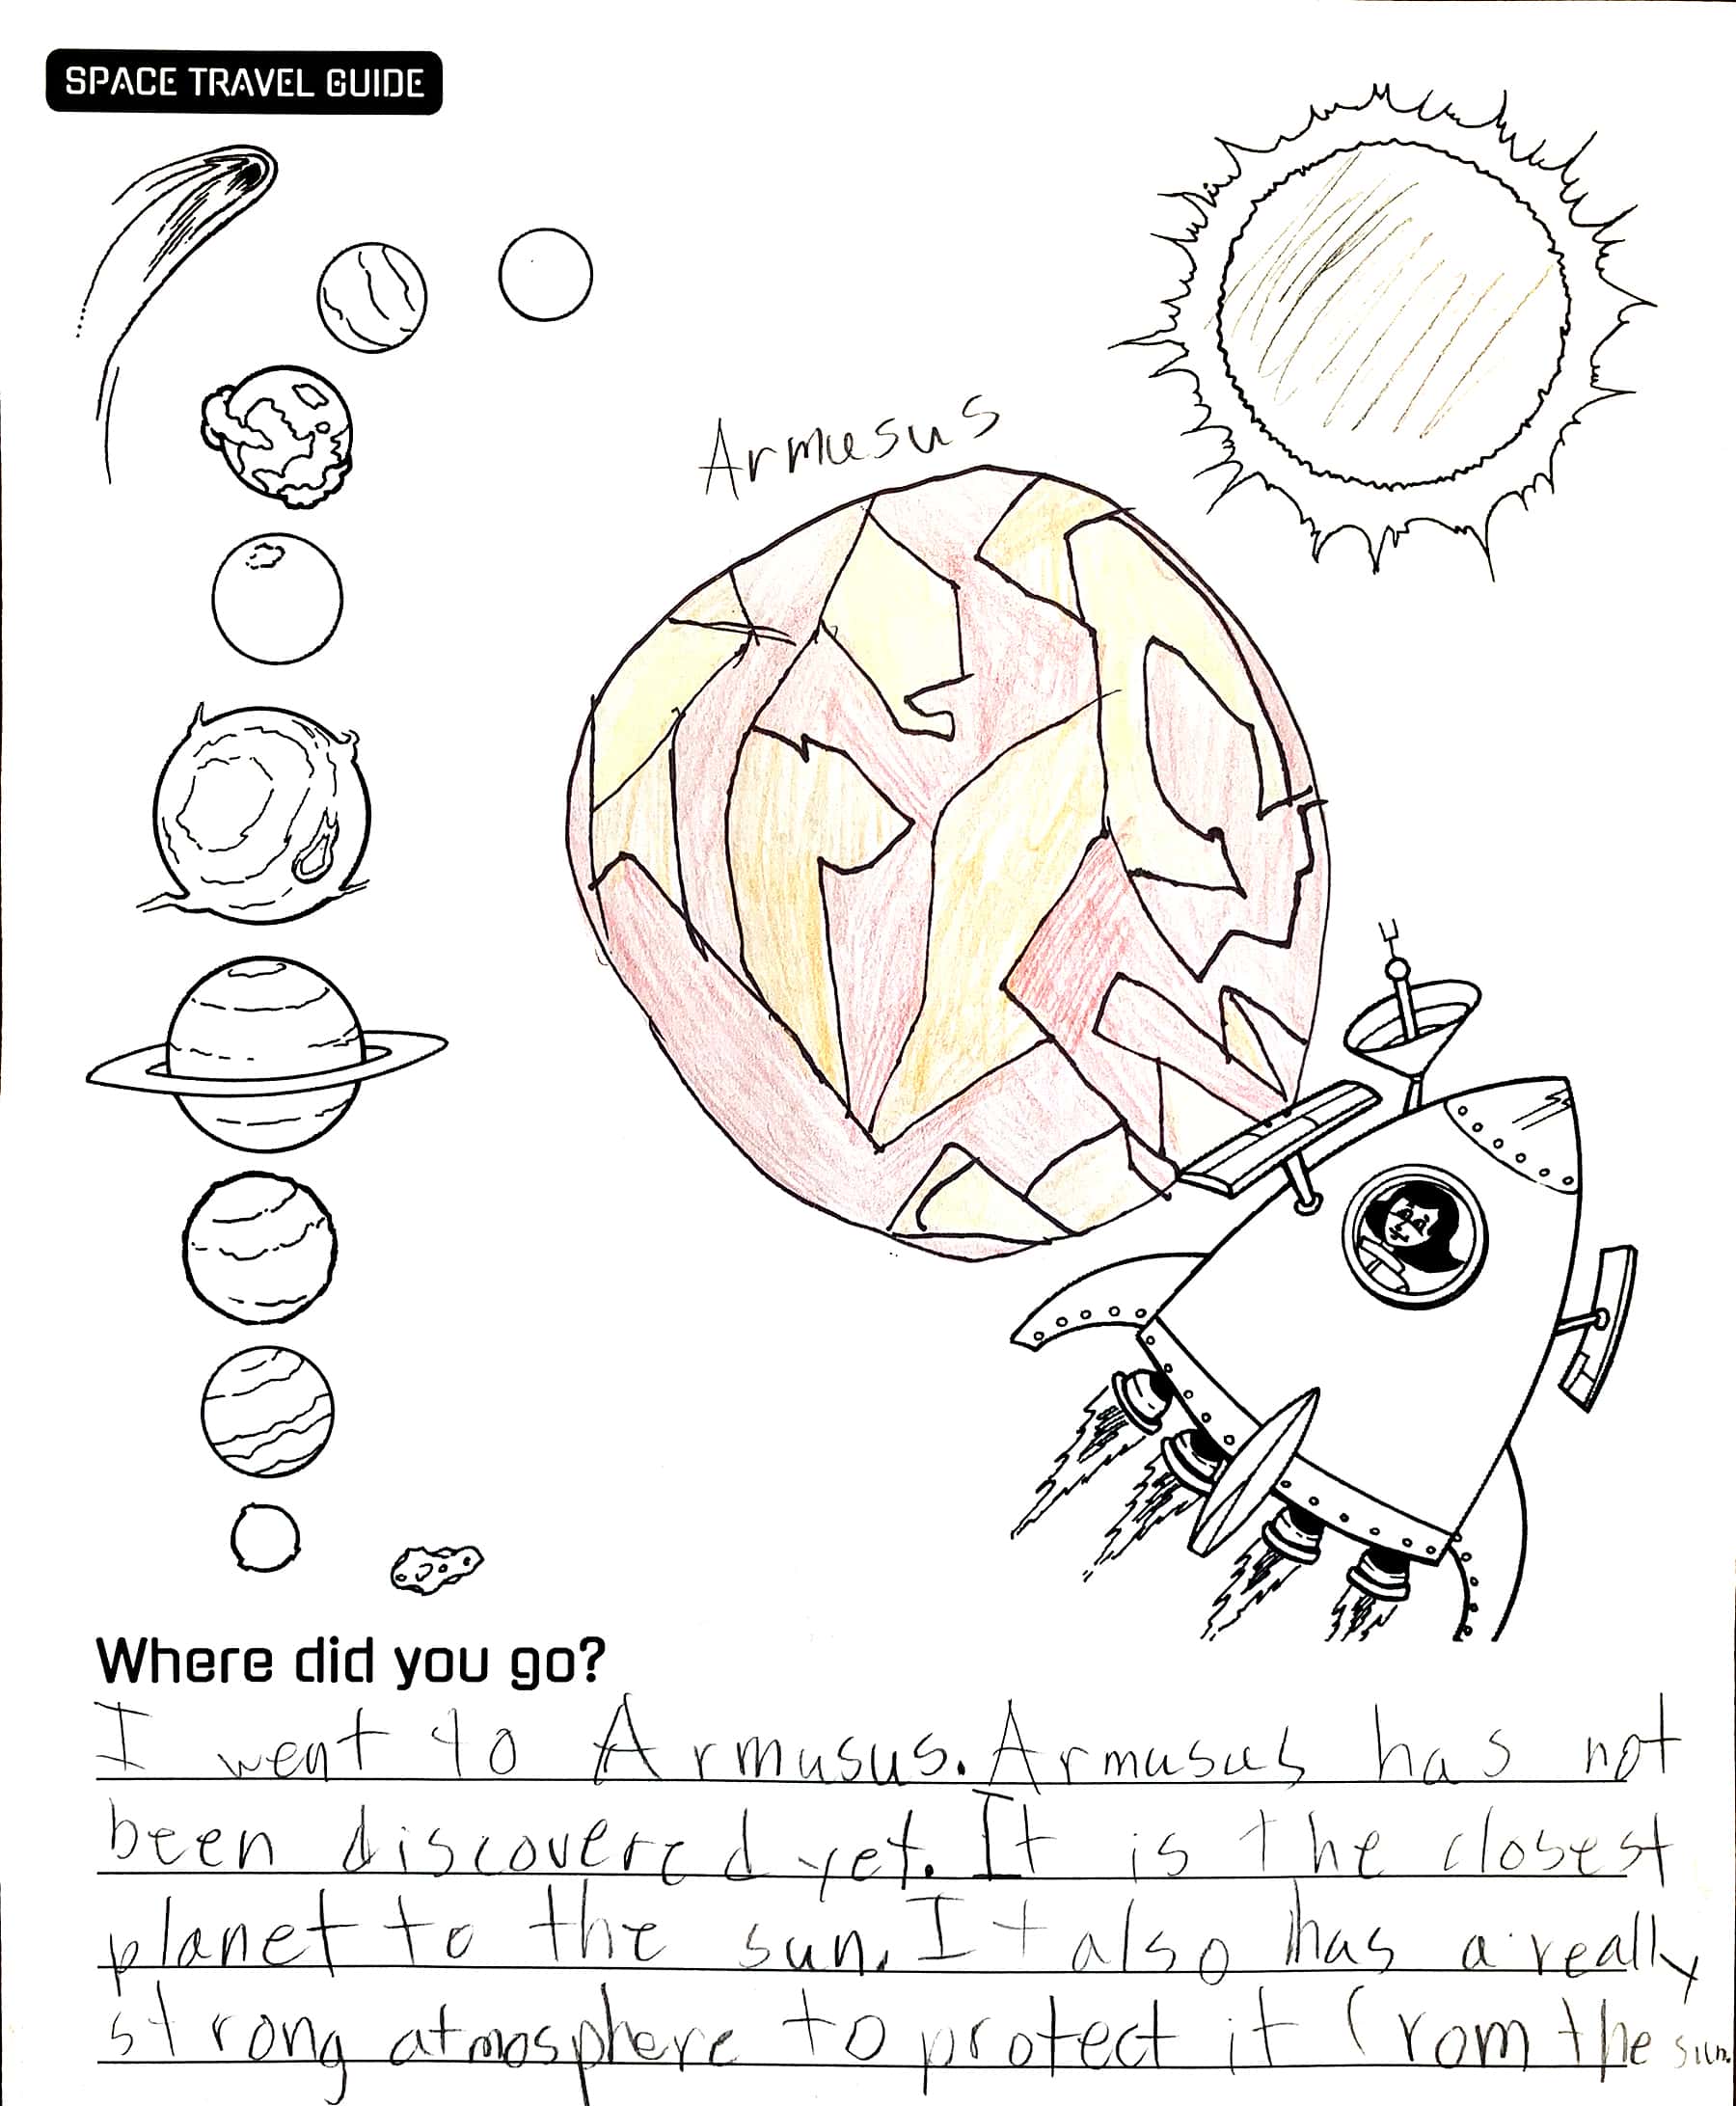 SPACE TRAVEL GUIDE
Armusus
Where did you go?
I went to Armusus. Armusus has not
been discovered yet. It is the closest
planet to the sun. It also has a really
strong atmosphere to protect it from the sun.